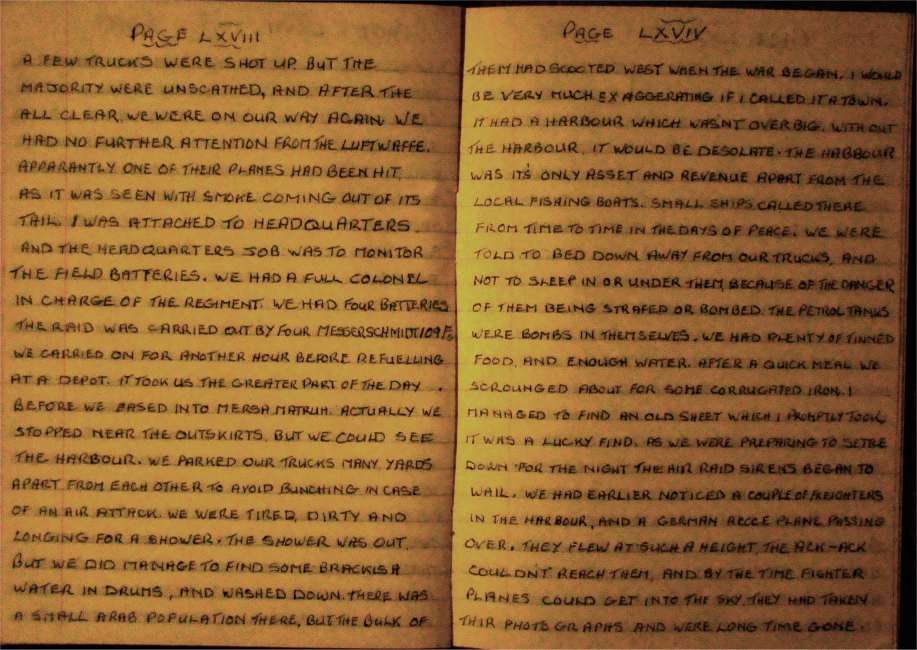 PAGE LXVIII
A FEW TRUCKS WERE SHOT UP. BUT THE
MAJORITY WERE UNSCATHED, AND AFTER THE
ALL CLEAR, WE WERE ON OUR WAY AGAIN. WE
HAD NO FURTHER ATTENTION FROM THE LUFTWAFFE.
APPARANTLY ONE OF THEIR PLANES HAD BEEN HIT,
AS IT WAS SEEN WITH SMOKE COMING OUT OF ITS
TAIL. I WAS ATTACHED TO HEADQUARTERS.
AND THE HEADQUARTERS JOB WAS TO MONITOR
THE FIELD BATTERIES. WE HAD A FULL COLONEL
IN CHARGE OF THE REGIMENT. WE HAD FOUR BATTERIES
THE RAID WAS CARRIED OUT BY FOUR MESSERSCHMIDT 109 F's
WE CARRIED ON FOR ANOTHER HOUR BEFORE REFUELLING
AT A DEPOT. IT TOOK US THE GREATER PART OF THE DAY.
BEFORE WE EASED INTO MERSA MATRUH. ACTUALLY WE
STOPPED NEAR THE OUTSKIRTS, BUT WE COULD SEE
THE HARBOUR. WE PARKED OUR TRUCKS MANY YARDS
APART FROM EACH OTHER TO AVOID BUNCHING IN CASE
OF AN AIR ATTACK. WE WERE TIRED, DIRTY AND
LONGING FOR A SHOWER. THE SHOWER WAS OUT,
BUT WE DID MANAGE TO FIND SOME BRACKISH
WATER IN DRUMS, AND WASHED DOWN. THERE WAS
A SMALL ARAB POPULATION THERE, BUT THE BULK OF
PAGE LXVIV
THEM HAD SCOOTED WEST WHEN THE WAR BEGAN. I WOULD
BE VERY MUCH EXAGGERATING IF I CALLED IT A TOWN.
IT HAD A HARBOUR WHICH WASN'T OVER BIG. WITH OUT
THE HARBOUR, IT WOULD BE DESOLATE. THE HARBOUR
WAS IT'S ONLY ASSET AND REVENUE APART FROM THE
LOCAL FISHING BOATS. SMALL SHIPS CALLED THERE
FROM TIME TO TIME IN THE DAYS OF PEACE. WE WERE
TOLD TO BED DOWN AWAY FROM OUR TRUCKS, AND
NOT TO SLEEP IN OR UNDER THEM, BECAUSE OF THE DANGER
OF THEM BEING STRAFED OR BOMBED. THE PETROL TANKS
WERE BOMBS IN THEMSELVES. WE HAD PLENTY OF TINNED
FOOD, AND ENOUGH WATER. AFTER A QUICK MEAL WE
SCROUNGED ABOUT FOR SOME CORRUGATED IRON. I
MANAGED TO FIND AN OLD SHEET WHICH I PROMPTLY TOOK
IT WAS A LUCKY FIND. AS WE WERE PREPARING TO SETTLE
DOWN FOR THE NIGHT THE AIR RAID SIRENS BEGAN TO
WAIL. WE HAD EARLIER NOTICED A COUPLE OF FREIGHTERS
IN THE HARBOUR, AND A GERMAN RECCE PLANE PASSING
OVER. THEY FLEW AT SUCH A HEIGHT, THE ACK-ACK
COULDN'T REACH THEM, AND BY THE TIME FIGHTER
PLANES COULD GET INTO THE SKY, THEY HAD TAKEN
THIR PHOTOGRAPHS AND WERE LONG TIME GONE.